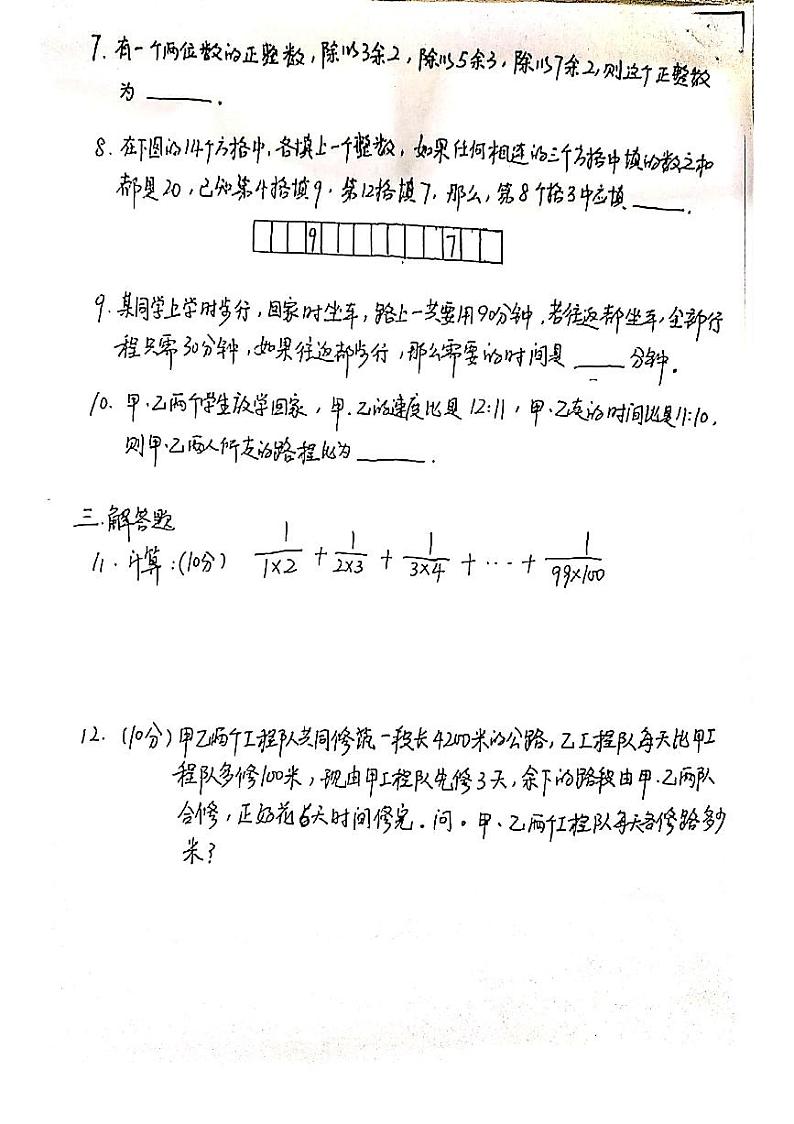 7. 有一个两位数的正整数，除以3余2，除以5余3，除以7余2，则这个正整数
为 ______ .
8. 在下图的14个方格中，各填上一个整数，如果任何相连的三个方格中填的数之和
都是20，已知第4格填9，第12格填7，那么，第8个格子中应填 _____ .
9 7
9. 某同学上学时步行，回家时坐车，路上一共要用90分钟，若往返都坐车，全部行
程只需30分钟，如果往返都步行，那么需要的时间是 _____ 分钟。
10. 甲、乙两个学生放学回家，甲、乙的速度比是12:11，甲、乙走的时间比是11:10，
则甲、乙两人所走的路程比为 ______ .
三.解答题
11. 计算:(10分) 1/1×2 + 1/2×3 + 1/3×4 + … + 1/99×100
12. (10分) 甲乙两个工程队共同修筑一段长4200米的公路，乙工程队每天比甲工
程队多修100米，现由甲工程队先修3天，余下的路段由甲、乙两队
合修，正好花6天时间修完。问。甲、乙两个工程队每天各修路多少
米？